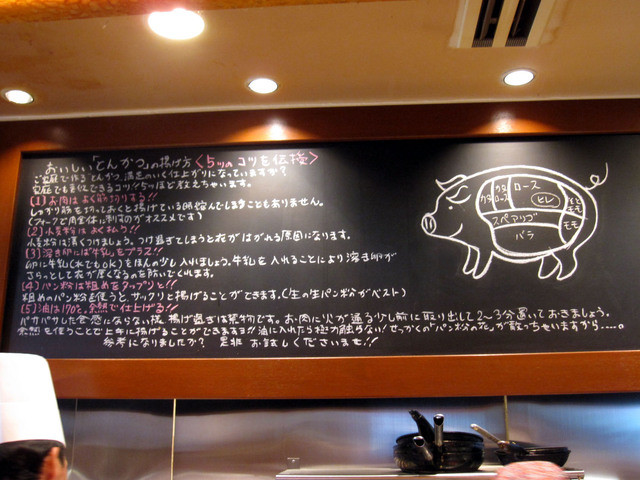 おいしい「とんかつ」の揚げ方〈5つのコツを伝授〉
ご家庭で作る"とんかつ"満足のいく仕上がりになっていますか?
家庭でも実践できるコツ!!5つほど教えちゃいます。
(1)お肉はよく筋切りする!!
しっかり筋を切っておくと揚げている間縮んでしまうこともありません。
(フォークで肉全体に刺すのがオススメです)
(2)小麦粉はよくおとう!!
小麦粉は薄くつけましょう。つけ過ぎてしまうと衣がはがれる原因になります。
(3)溶き卵には"牛乳"をプラス!!
卵に牛乳(水でもok)をほんの少し入れましょう。牛乳を入れることにより溶き卵が
さらっとして衣が厚くなるのを防いでくれます。
(4)パン粉は粗めをタップリと!!
粗めのパン粉を使うと、サックリと揚げることができます。(生の生パン粉がベスト)
(5)油は170℃、余熱で仕上げる!!
パサパサした食感にならない様 揚げ過ぎは禁物です。お肉に火が通る少し前に取り出して2〜3分置いておきましょう。
余熱を使うことで上手に揚げることができます!!油に入れたら極力触らない!せっかくの「パン粉の花」が散っちゃいますから……。
参考になりましたか? 是非 お試しくださいませ!!
ロース
ヒレ
スペアリブ
バラ
モモ